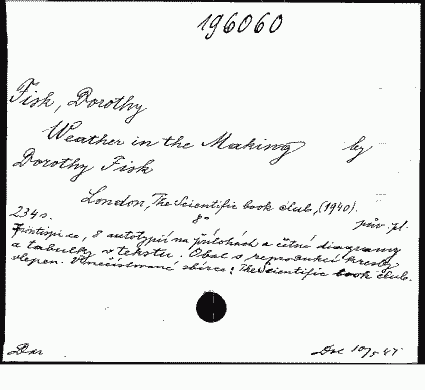 196060
Fisk, Dorothy
Weather in the Making by
Dorothy Fisk
London, The Scientific book club, (1940).
234 s. 8° pův. pl.
Frontispice, 8 autotypií na přílohách a četné diagramy
a tabulky v tekstu. Obal s reprodukcí kresby
vlepen. V nečíslované sbírce: The Scientific book club.
Dar Dar 10/5 45